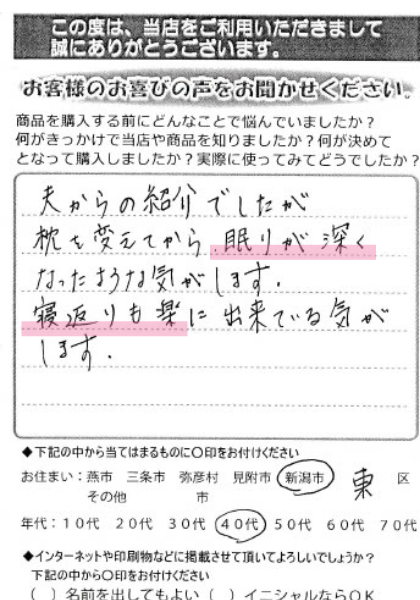 この度は、当店をご利用いただきまして
誠にありがとうございます。
お客様のお喜びの声をお聞かせください。
商品を購入する前にどんなことで悩んでいましたか？
何がきっかけで当店や商品を知りましたか？何が決めて
となって購入しましたか？実際に使ってみてどうでしたか？
夫からの紹介でしたが
枕を変えてから、眠りが深く
なったような気がします。
寝返りも楽に出来ている気が
します。
◆下記の中から当てはまるものに〇印をお付けください
お住まい：燕市 三条市 弥彦村 見附市 新潟市 東 区
その他 市
年代：10代 20代 30代 40代 50代 60代 70代
◆インターネットや印刷物などに掲載させて頂いてよろしいでしょうか？
下記の中から〇印をお付けください
（ ）名前を出してもよい（ ）イニシャルならOK